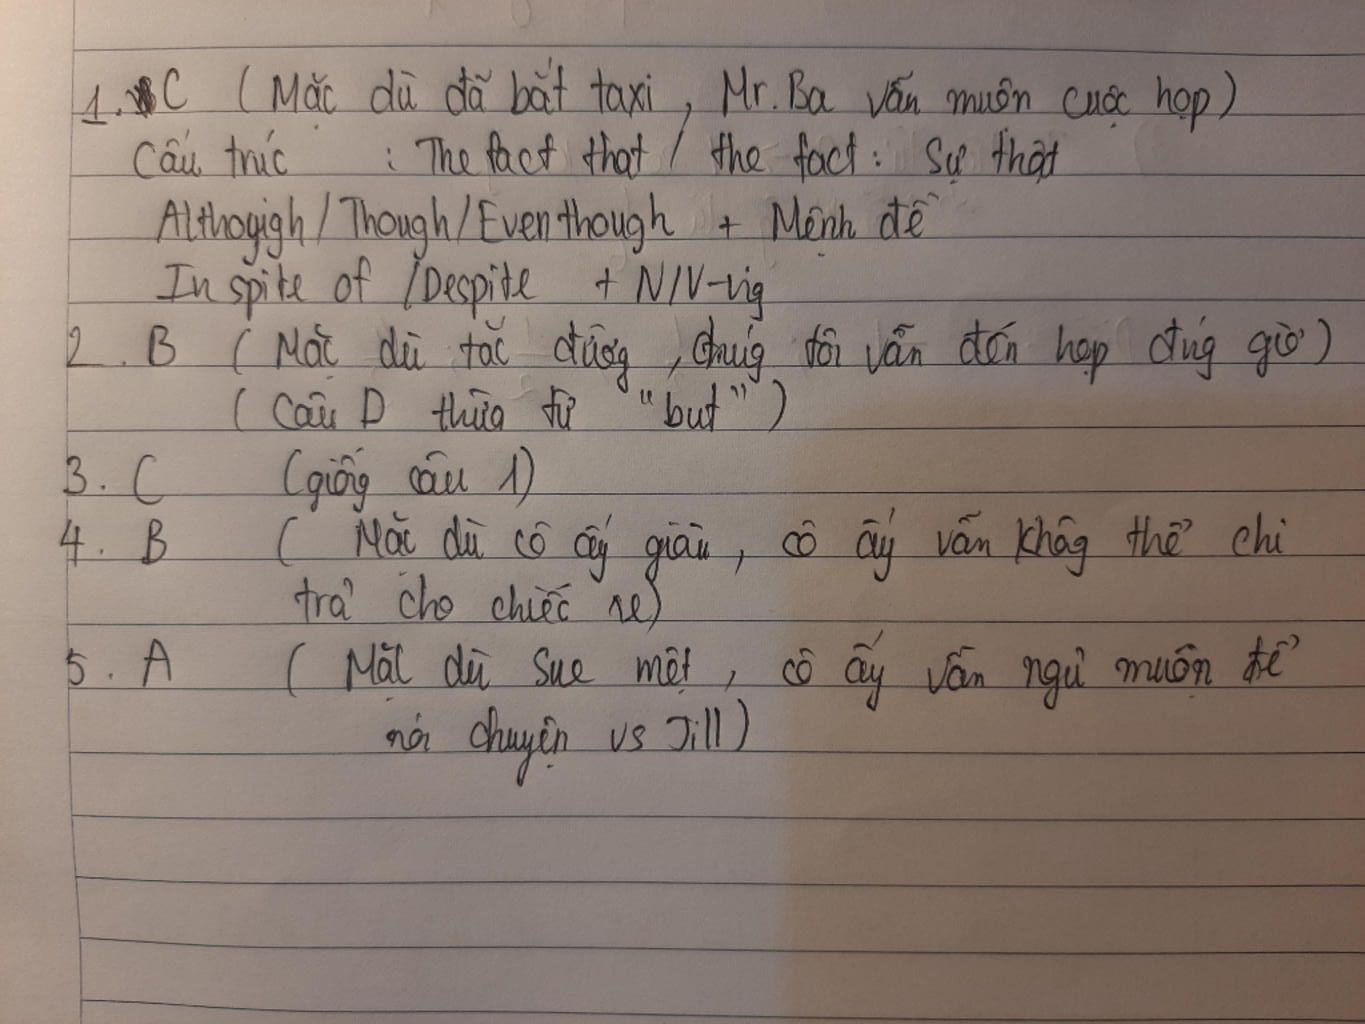 1. C (Mặc dù đã bắt taxi, Mr. Ba vẫn muôn cuộc họp)
Cấu trúc : The fact that / the fact: Sự thật
Althoyigh / Though / Eventhough + Mệnh đề
In spite of / Despite + N/V-ing
2. B (Mặc dù tắc đường, chúng tôi vẫn đến họp đúng giờ)
(Câu D thừa từ "but")
3. C (giống câu 1)
4. B (Mặc dù cô ấy giàu, cô ấy vẫn không thể chi
trả cho chiếc xe)
5. A (Mặc dù Sue mệt, cô ấy vẫn ngủ muộn để
nói chuyện vs Jill)